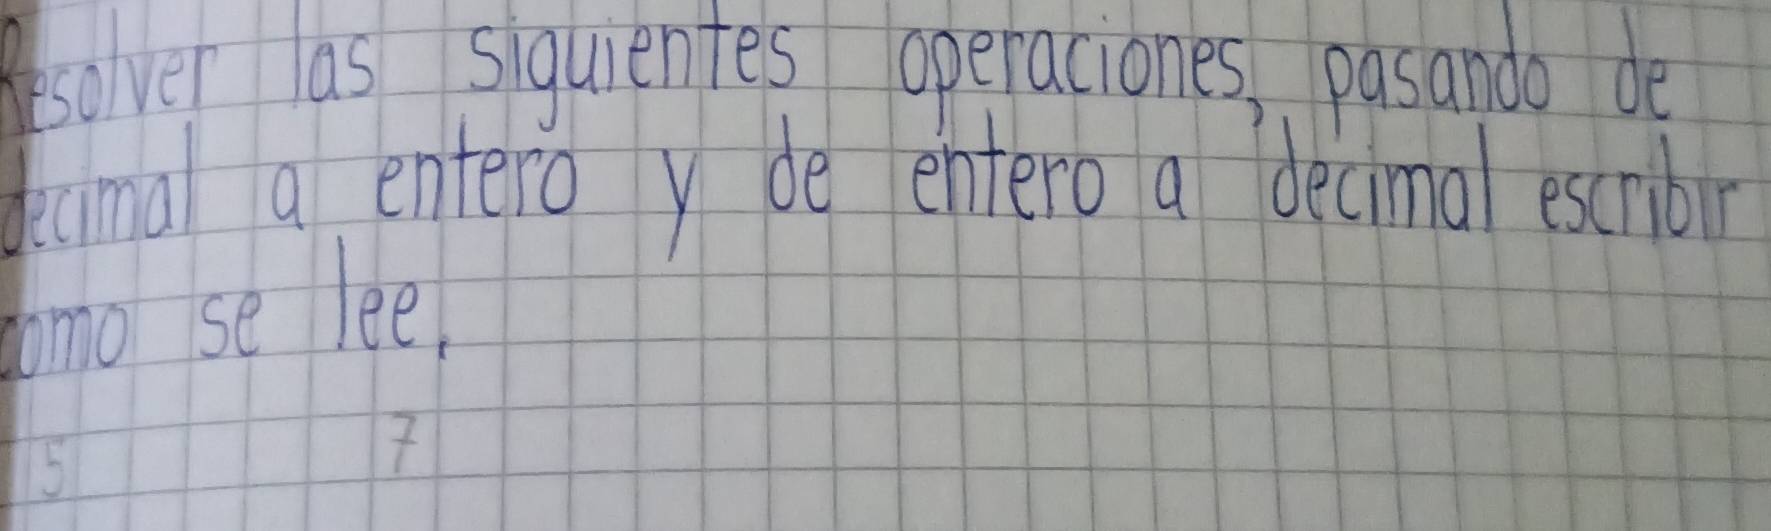 Resolver las siguientes operaciones, pasando de
decimal a entero y de entero a decimal escribir
como se lee.
15 7